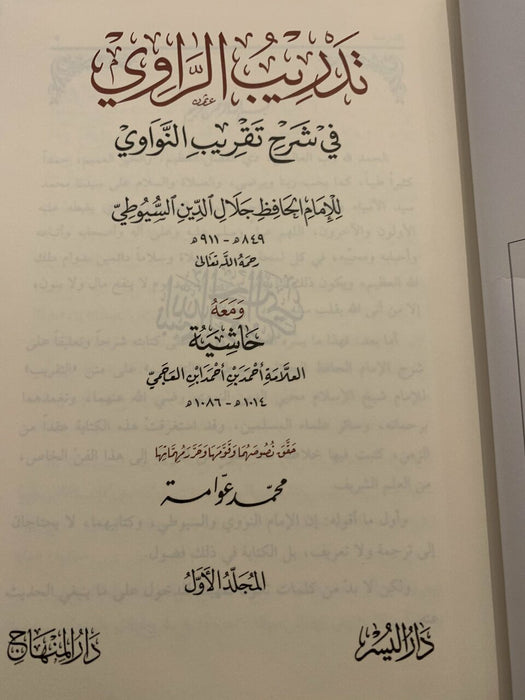 تَدْرِيبُ الرَّاوِي
فِي شَرْحِ تَقْرِيبِ النَّوَاوِي
لِلإِمَامِ الحَافِظِ جَلَالِ الدِّينِ السُّيُوطِيِّ
٨٤٩هـ - ٩١١هـ
رَحِمَهُ اللهُ تَعَالَى
وَمَعَهُ
حَاشِيَةُ
العَلَّامَةِ أَحْمَدَ بْنِ أَحْمَدَ ابْنِ العَجَمِيِّ
١٠١٤هـ - ١٠٨٦هـ
حَقَّقَ نُصُوصَهُمَا وَقَوَّمَهَا وَحَرَّرَ مُهِمَّاتِهَا
محمد عوامة
المُجَلَّدُ الأَوَّلُ
دَارُ اليُسْرِ
دَارُ المِنْهَاجِ